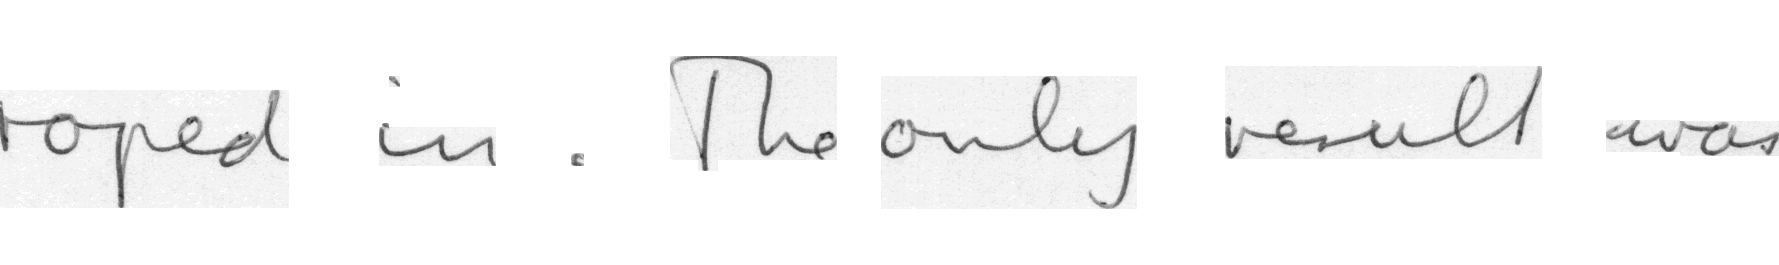 roped in . The only result was